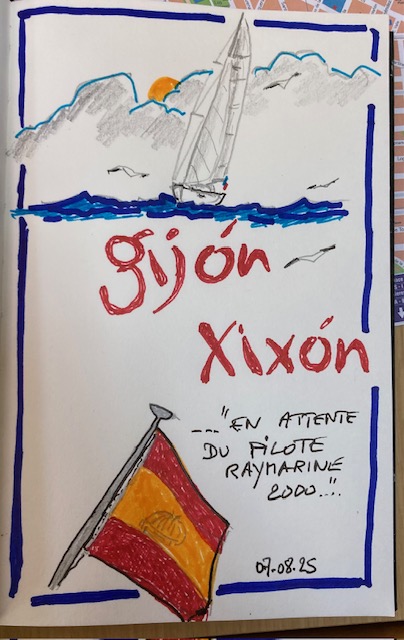 gijón
Xixón
..."EN ATTENTE
DU PILOTE
RAYMARINE
2000..."
07.08.25